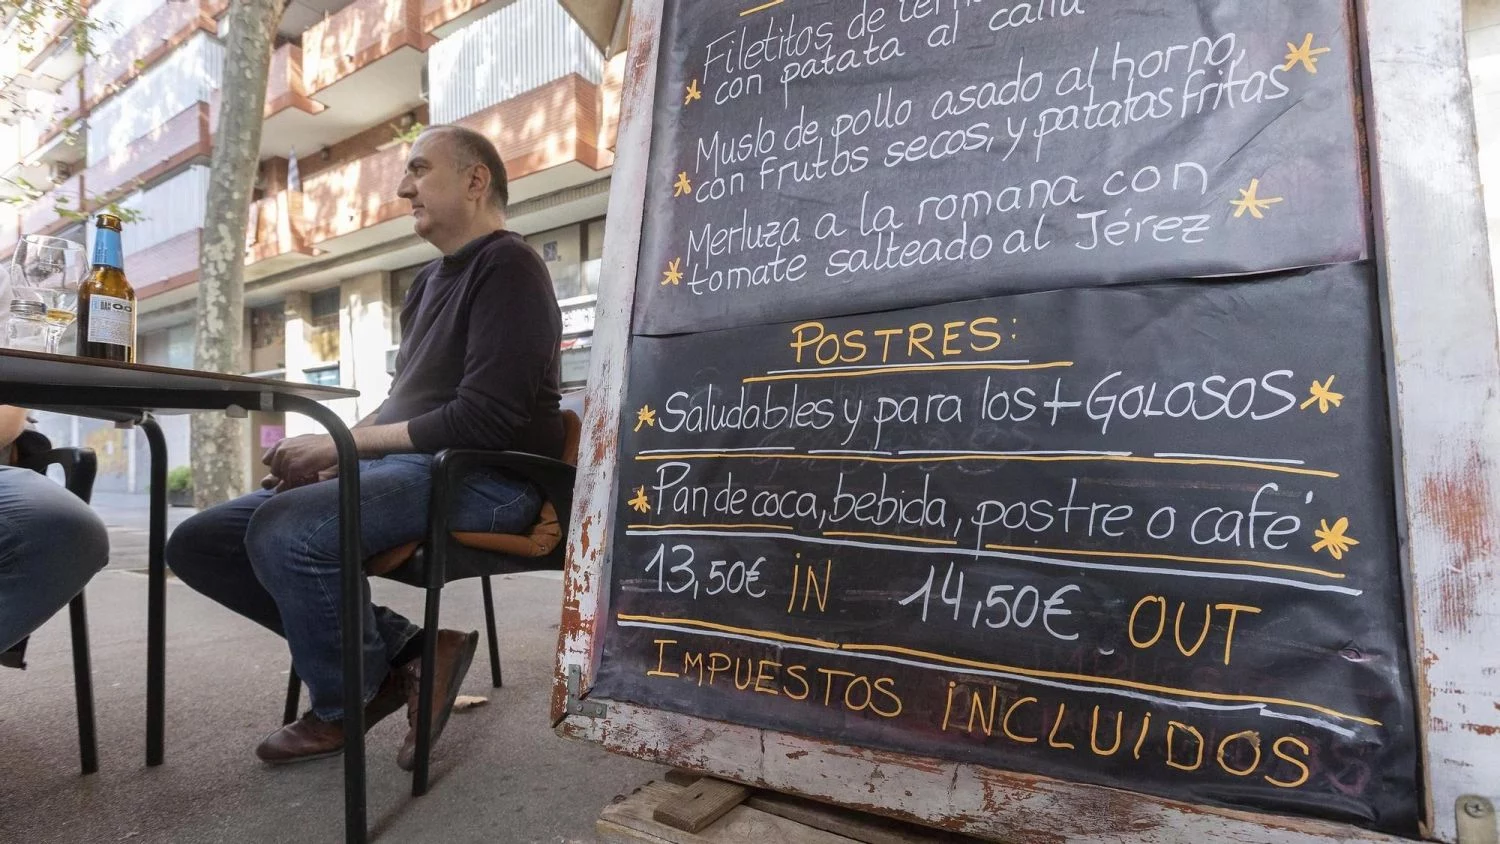 Filetitos de
con patata al
Muslo de pollo asado al horno,
con frutos secos, y patatas fritas
Merluza a la romana con
tomate salteado al Jérez
POSTRES:
Saludables y para los + GOLOSOS
Pan de coca, bebida, postre o café
13,50€ IN 14,50€ OUT
IMPUESTOS INCLUIDOS
DAM 0,0